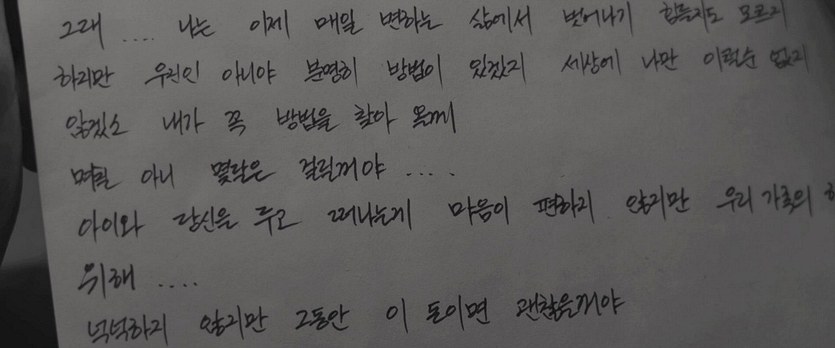 그래 .... 나는 이제 매일 변하는 삶에서 벗어나기 힘들지도 모르지
하지만 우연인 아니야 분명히 방법이 있겠지 세상에 나만 이럴순 없지
않겠소 내가 꼭 방법을 찾아 올께
며칠 아니 몇달은 걸릴꺼야 ....
아이와 당신을 두고 떠나는게 마음이 편하지 않지만 우리 가족의
위해 ....
넉넉하지 않지만 그동안 이 돈이면 괜찮을꺼야